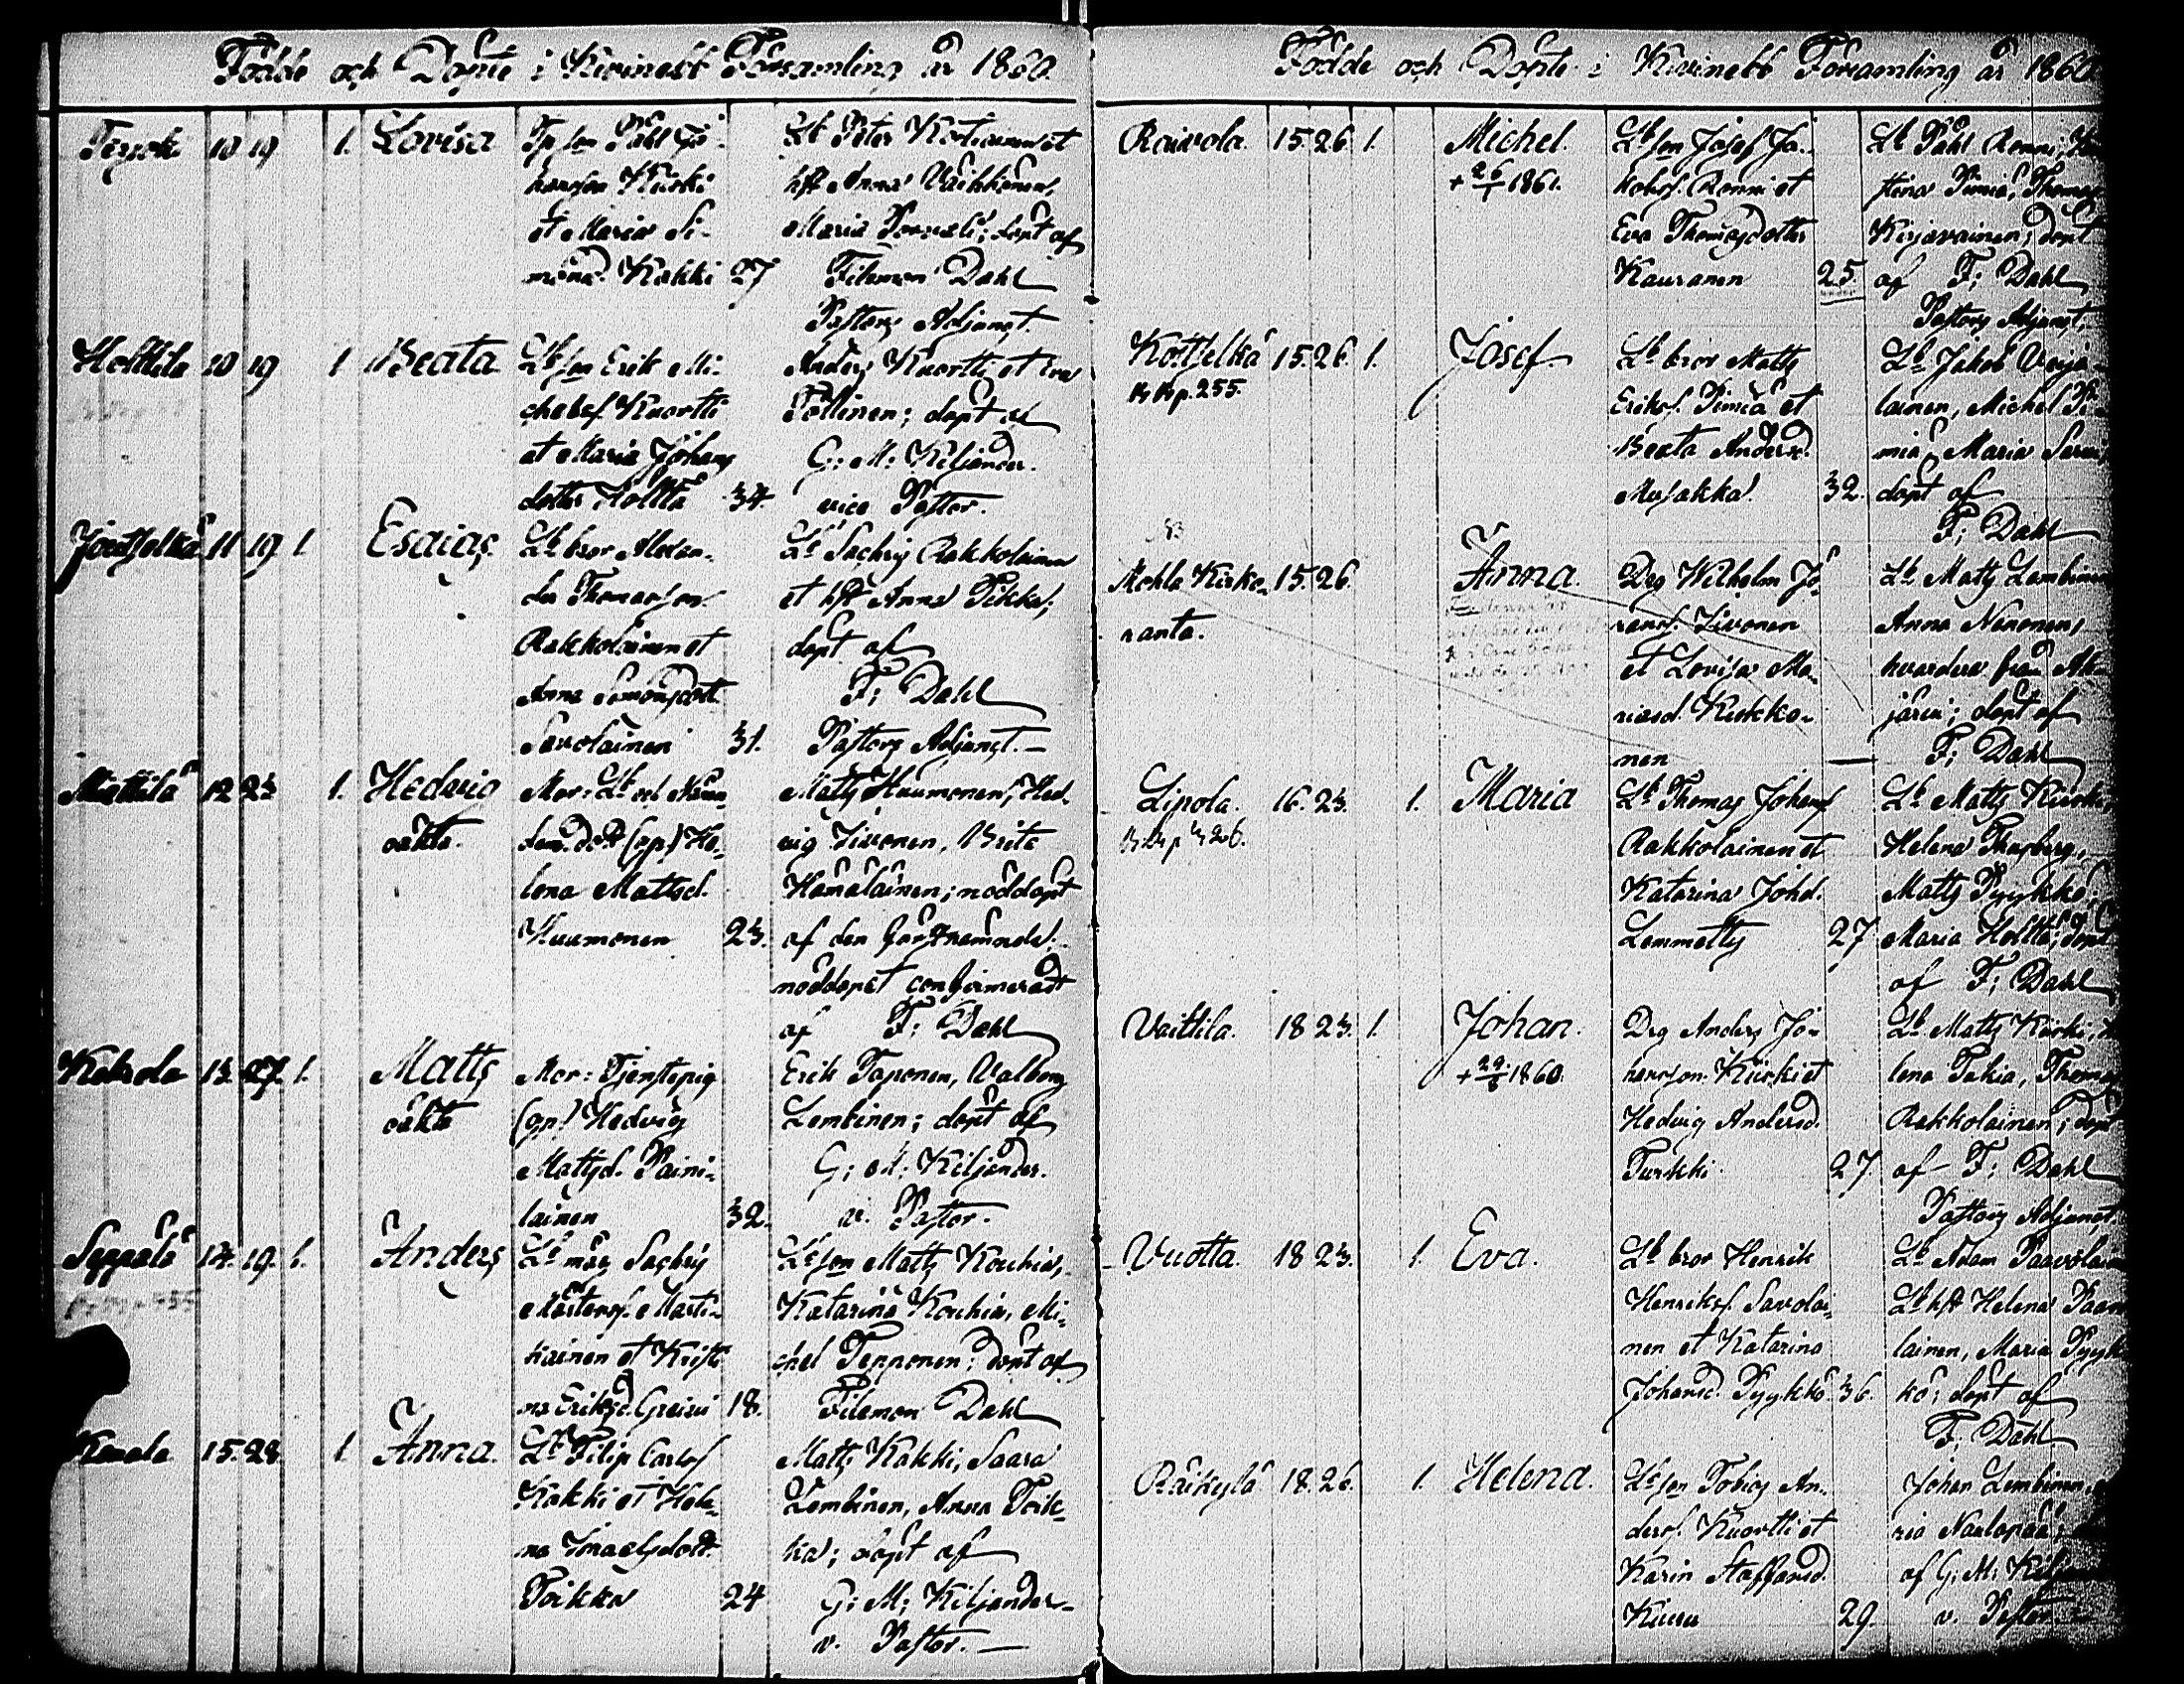 Födde och Döpte i Kivinebb Församling år 1860.
Teyok 10 19 1. Lovisa
Tp son Påhl Jo-
hansson Kurki
et Maria Si-
monsd. Kakki 27
Lb Peter
hst Anna Vaikkonen,
Maria döpt af
Filemon Dahl
Pastors Adjunct.
Holttila 10 19 1 Beata
Lb son Erik Mi-
chelss Kuortti
et Maria Johans
dotter Holtta 34.
Anders Kuortti et Eva
Pöllinen; döpt af
G: M: Kiljander.
vice Pastor.
Joutselkä 11 19 1. Esaias
Lb bror Alexan-
der Thomasson
Rakkolainen et
Anna Simonsdott
Savolainen 31.
Lb Sachris Rakkolainen
et hst Anna Pikka;
döpt af
F: Dahl
Pastors Adjunct.—
Mättilä 12 23 1. Hedvig
oäkta.
Mor: Lb och
dott (gp) He-
lena Mattsd.
Huumonen 23.
Matts Huumonen, Hed-
vig Iivonen, Brita
Hämäläinen; nöddöpt
af den förstnämnde;
nöddopet confirmeradt
af F: Dahl
Kekrola 13. 27. 1. Matts
oäkta
Mor: Tjenstepig
(gp) Hedvig
Mattsd. Paini-
lainen 32.
Erik Taponen, Valborg
Lembinen; döpt af
G: M: Kiljander.
v. Pastor.
Seppälä 14. 19. 1. Anders
Lb måg Sachris
Mårtenss. Marti-
kainen et Kristi
na Eriksd. Greisi 18.
Lb son Matts Kouhia,
Katarina Kouhia, Mi-
chel Tepponen; döpt af
Filemon Dahl
Kenola 15. 28. 1. Anna.
Lb Filip Carlss
Kakki et Hele-
na Ismaelsdott.
Toikka 24
Matts Kakki, Saara
Lembinen, Anna Toik-
ka; döpt af
G: M: Kiljander
v. Pastor.—
Födde och Döpte i Kivinebb Församling år 1860
Raivola. 15. 26. 1. Michel.
+ 26/1 1861.
Lb son Josef Ja-
kobss. Ronni et
Eva Thomasdotter
Kauranen 25.
Lb Påhl Ronni,
stina Pimiä, Thomas
Kirjavainen; döpt
af F: Dahl
Pastors Adjunct.
Kottselkä 15. 26. 1. Josef.
p. 255.
Lb bror Matts
Erikss. Pimiä et
Beata Andersd.
Musakka. 32.
Lb Jakob
lainen, Michel Pi-
miä, Maria
döpt af
F: Dahl
Mohla Kirko- 15. 26. Anna.
ranta.
Drg Wilhelm Jo-
hanss. Iivonen
et Lovisa Ma-
riasd. Kukko-
nen —
Lb Matts Lembinen
Anna Nenonen,
hvardera från
järvi; döpt af
F: Dahl
Lipola. 16. 23. 1. Maria
Lb Thomas Johanss
Rakkolainen et
Katarina Johd.
Lemmetty 27
Lb Matts Kurki,
Helena
Matts Pyykkö,
Maria Holtta; döpt
af F: Dahl
Vaittila. 18 23. 1. Johan.
+ 29/8 1860.
Drg Anders Jo-
hansson Kurki et
Hedvig Andersd.
Turkki 27.
Lb Matts Kurki,
lena Pakia, Thomas
Rakkolainen; döpt
af F: Dahl
Pastors Adjunct
Vuotta. 18 23. 1. Eva.
Lb bror Henrik
Henrikss. Savolai-
nen et Katarina
Johansd. Pyykkö. 36.
Lb Adam Paavolainen
Lb hst Helena
lainen, Maria Pyyk-
kö; döpt af
F: Dahl
Räikylä 18. 26. 1. Helena.
Lb son Tobias An-
derss. Kuortti et
Karin Staffansd.
Kiuru 29.
Johan Lembinen,
ria Naulapää;
af G: M:
v. Pastor